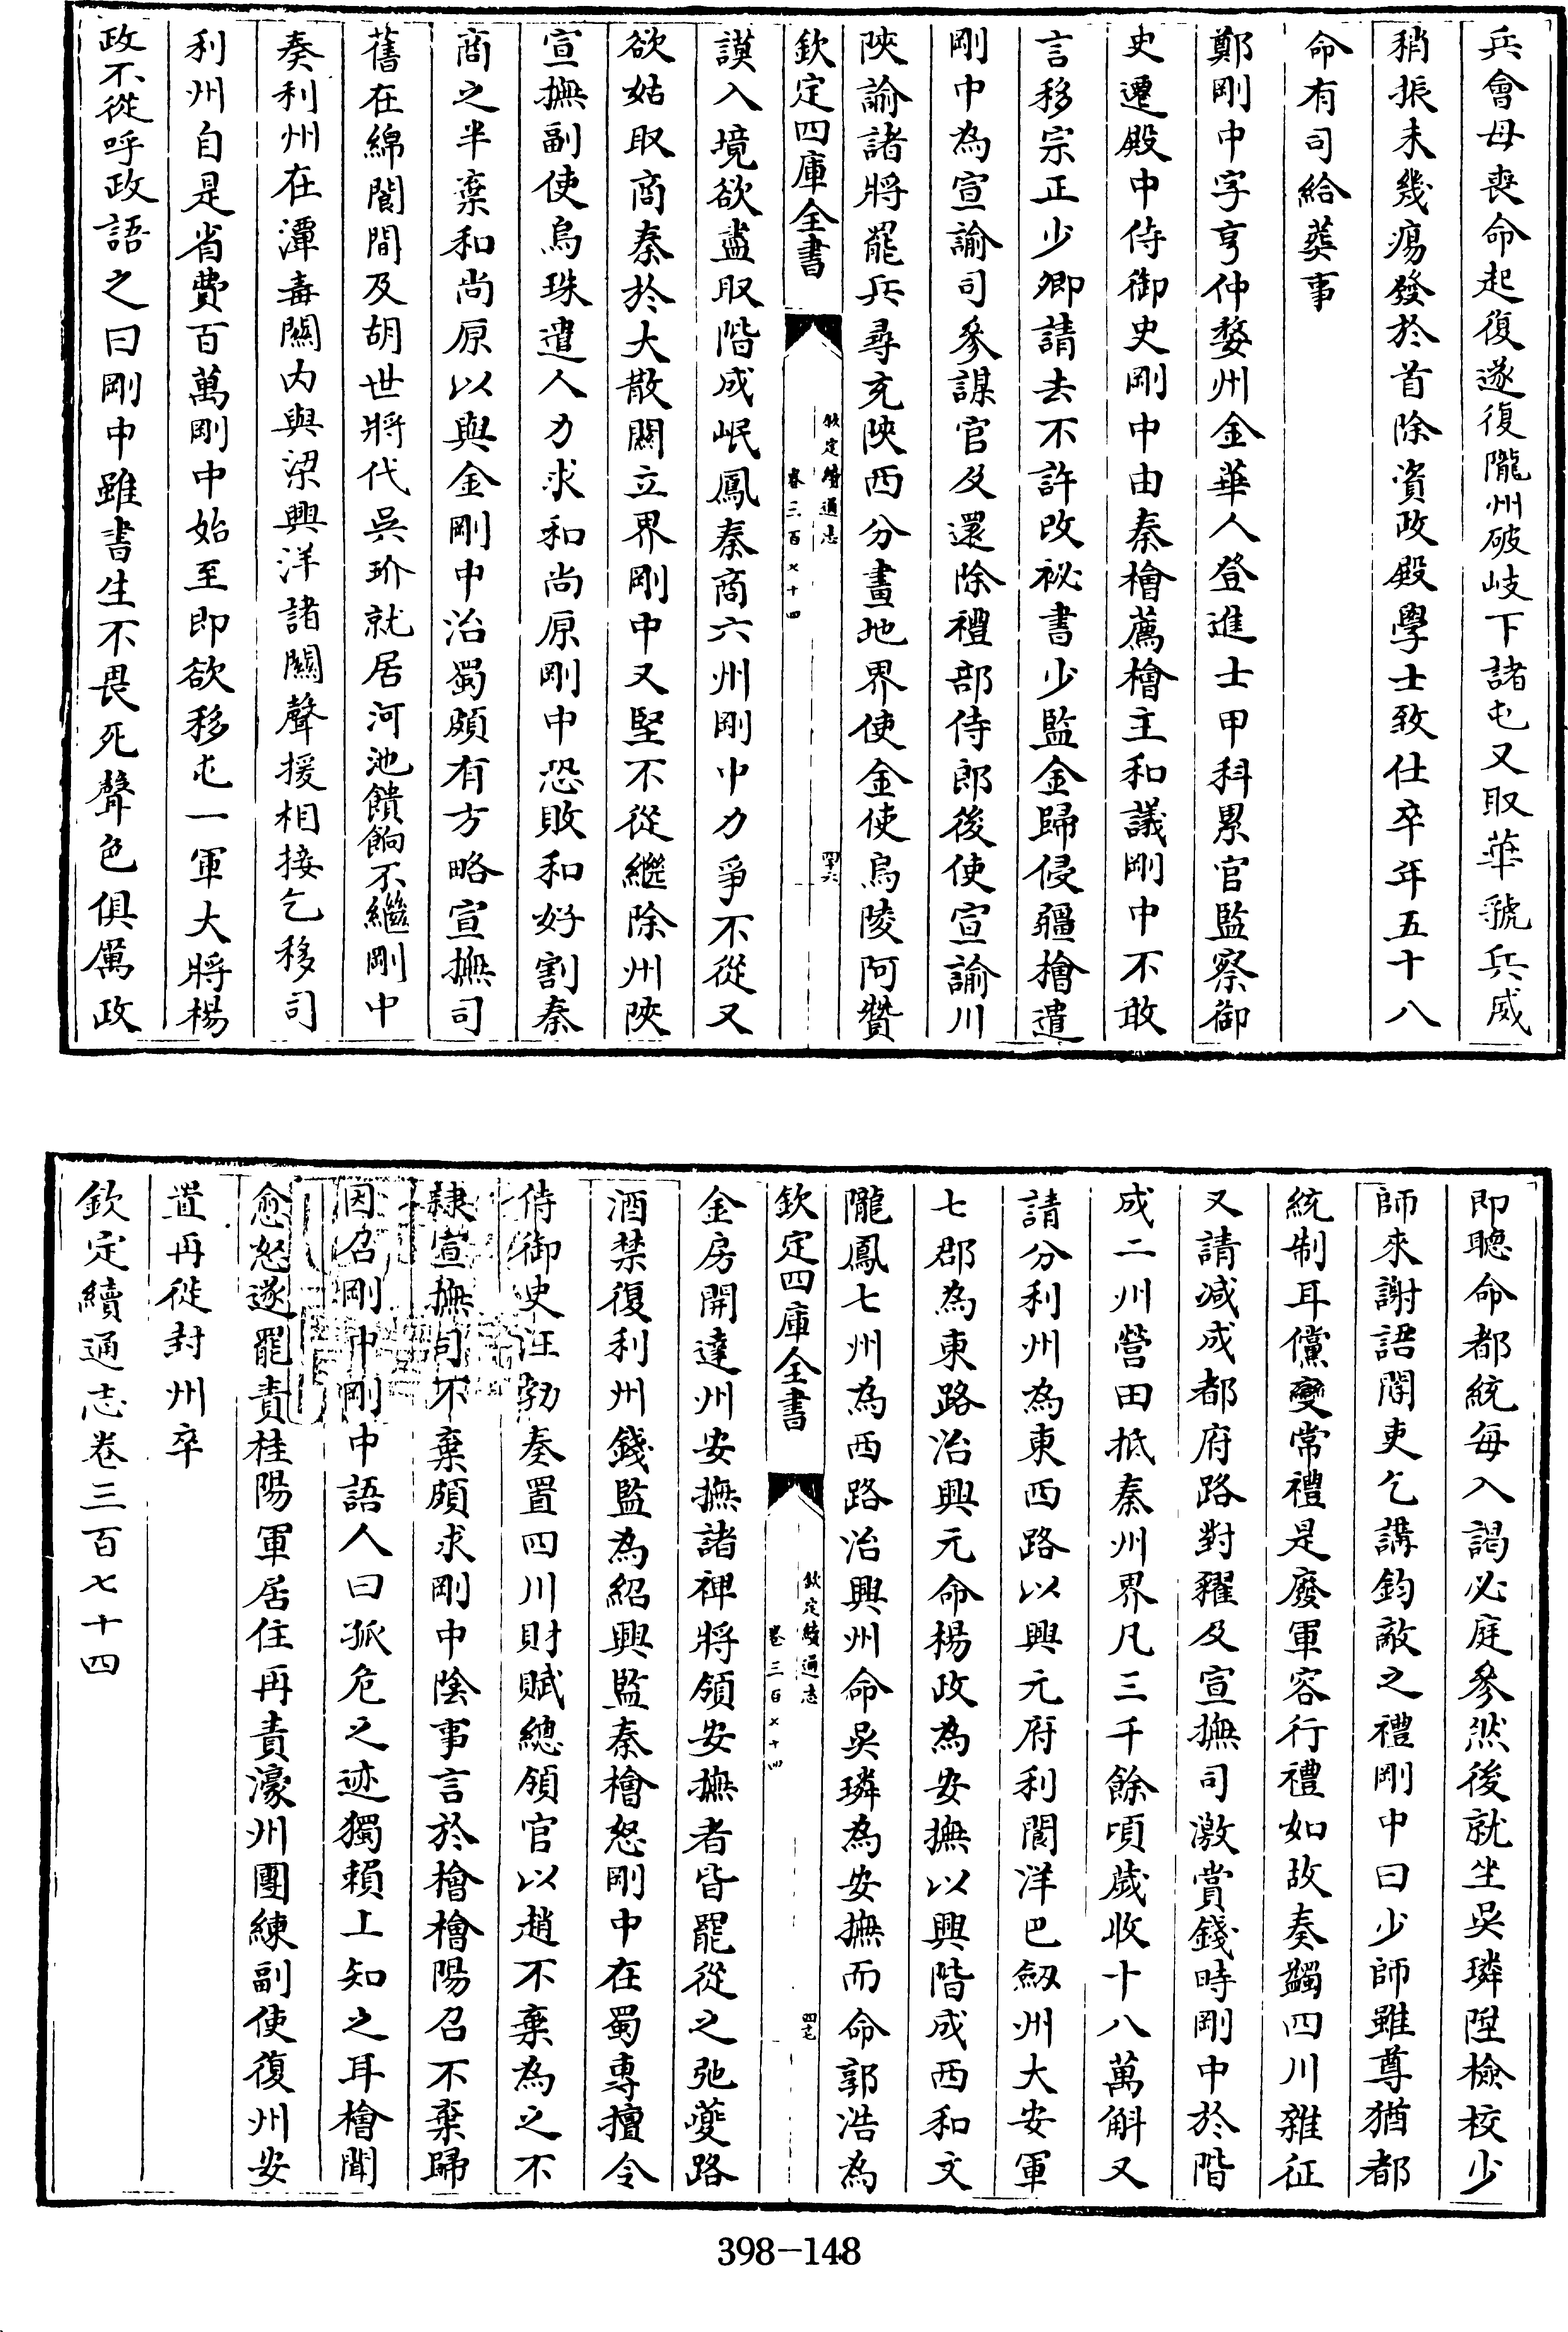 兵會母喪命起復遂復隴州破岐下諸屯又取華虢兵威
稍振未幾瘍發於首除資政殿學士致仕卒年五十八
命有司給葬事
鄭剛中字亨仲婺州金華人登進士甲科累官監察御
史遷殿中侍御史剛中由秦檜薦檜主和議剛中不敢
言移宗正少卿請去不許改祕書少監金歸侵疆檜遣
剛中為宣諭司參謀官及還除禮部侍郎後使宣諭川
陝諭諸將罷兵尋充陝西分畫地界使金使烏陵阿贊
欽定四庫全書
欽定續通志
卷三百七十四
四十六
謨入境欲盡取階成岷鳳秦商六州剛中力爭不從又
欲姑取商秦於大散關立界剛中又堅不從繼除州陝
宣撫副使烏珠遣人力求和尚原剛中恐敗和好割秦
商之半棄和尚原以與金剛中治蜀頗有方略宣撫司
舊在綿閬間及胡世將代吳玠就居河池饋餉不繼剛中
奏利州在潭毒關內與梁興洋諸關聲援相接乞移司
利州自是省費百萬剛中始至即欲移屯一軍大將楊
政不從呼政語之曰剛中雖書生不畏死聲色俱厲政
即聽命都統每入謁必庭參然後就坐吳璘陞檢校少
師來謝語閽吏乞講鈞敵之禮剛中曰少師雖尊猶都
統制耳儻變常禮是廢軍容行禮如故奏蠲四川雜征
又請減成都府路對糴及宣撫司激賞錢時剛中於階
成二州營田抵秦州界凡三千餘頃歲收十八萬斛又
請分利州為東西路以興元府利閬洋巴劔州大安軍
七郡為東路治興元命楊政為安撫以興階成西和文
隴鳳七州為西路治興州命吳璘為安撫而命郭浩為
欽定四庫全書
欽定續通志
卷三百七十四
四十七
金房開達州安撫諸裨將領安撫者皆罷從之弛夔路
酒禁復利州錢監為紹興監秦檜怒剛中在蜀專擅令
侍御史汪勃奏置四川財賦總領官以趙不棄為之不
隸宣撫司不棄頗求剛中陰事言於檜檜陽召不棄歸
因召剛中剛中語人曰孤危之迹獨賴上知之耳檜聞
愈怒遂罷責桂陽軍居住再責濠州團練副使復州安
置再徙封州卒
欽定續通志卷三百七十四
398-148